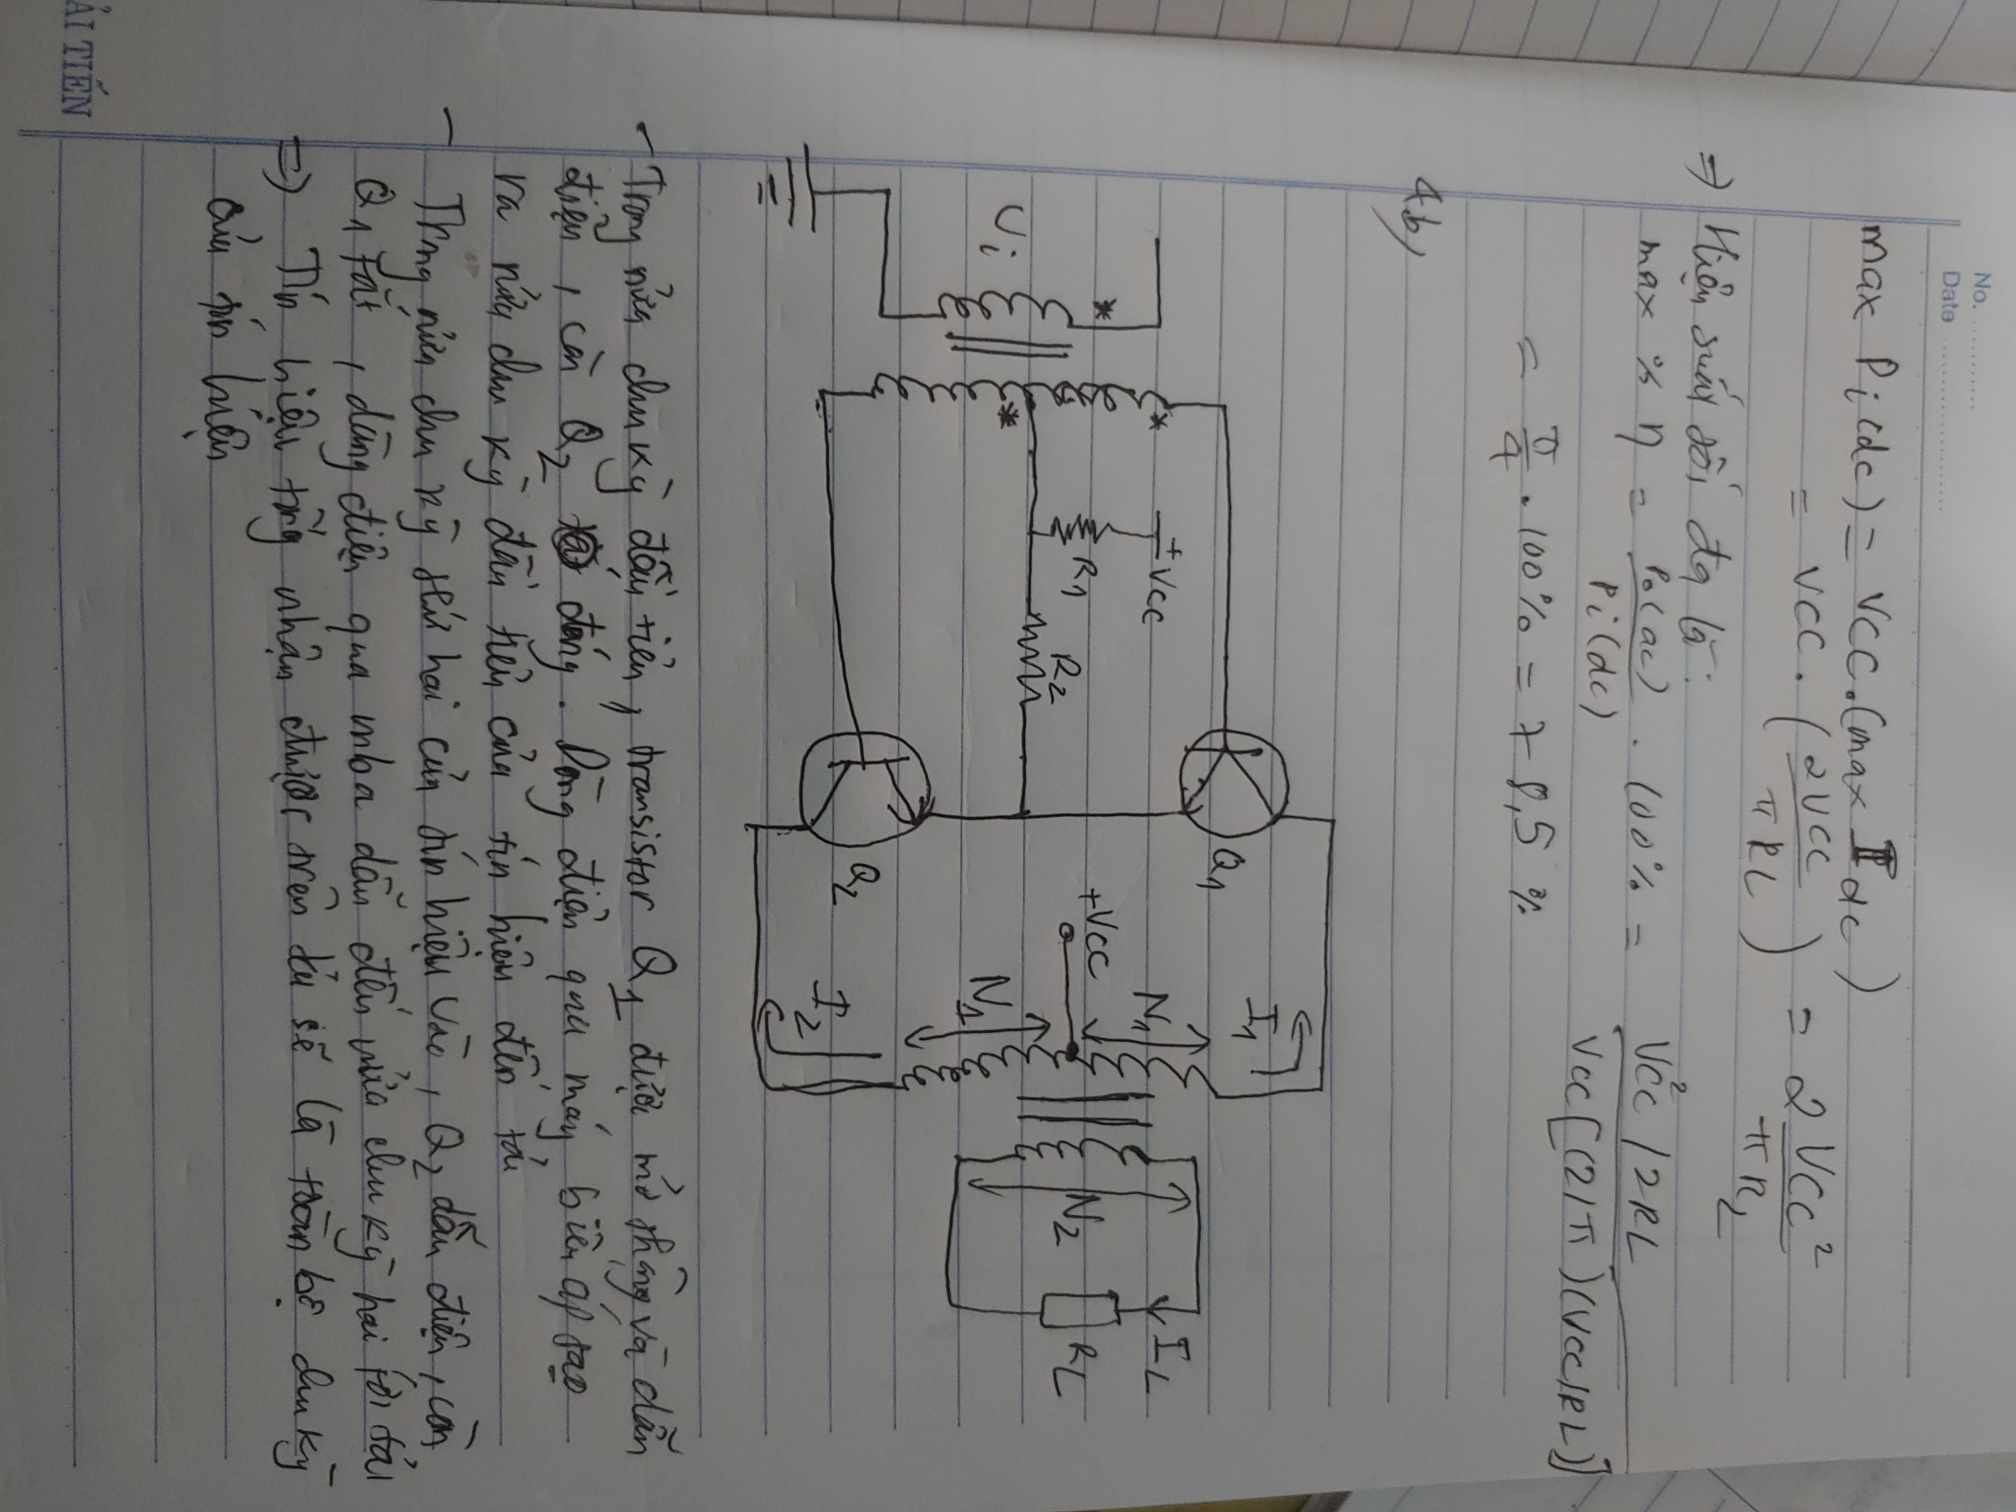 No. ............
Date ..................
max Pi(dc) = VCC.(max Idc)
= VCC. (2VCC / πRL) = 2VCC² / πRL
=) Hiệu suất tối đa là:
max % η = Po(ac) / Pi(dc) . 100% = VCC² / 2RL / VCC[(2/π)(VCC/RL)]
= π/4 . 100% = 78,5 %
4b,
+VCC
Q1
I1
Ui
*
*
*
R1
R2
+VCC
N1
N1
N2
IL
RL
Q2
I2
- Trong nửa chu kỳ đầu tiên, transistor Q1 được mở thông và dẫn
điện, còn Q2 đóng. Dòng điện qua máy biến áp tạo
ra nửa chu kỳ đầu tiên của tín hiệu đến tải
- Trong nửa chu kỳ thứ hai của tín hiệu vào, Q2 dẫn điện, còn
Q1 tắt, dòng điện qua mba dẫn đến nửa chu kỳ hai tới tải
=) Tín hiệu tổng nhận được trên tải sẽ là toàn bộ chu kỳ
của tín hiệu
ẢI TIẾN